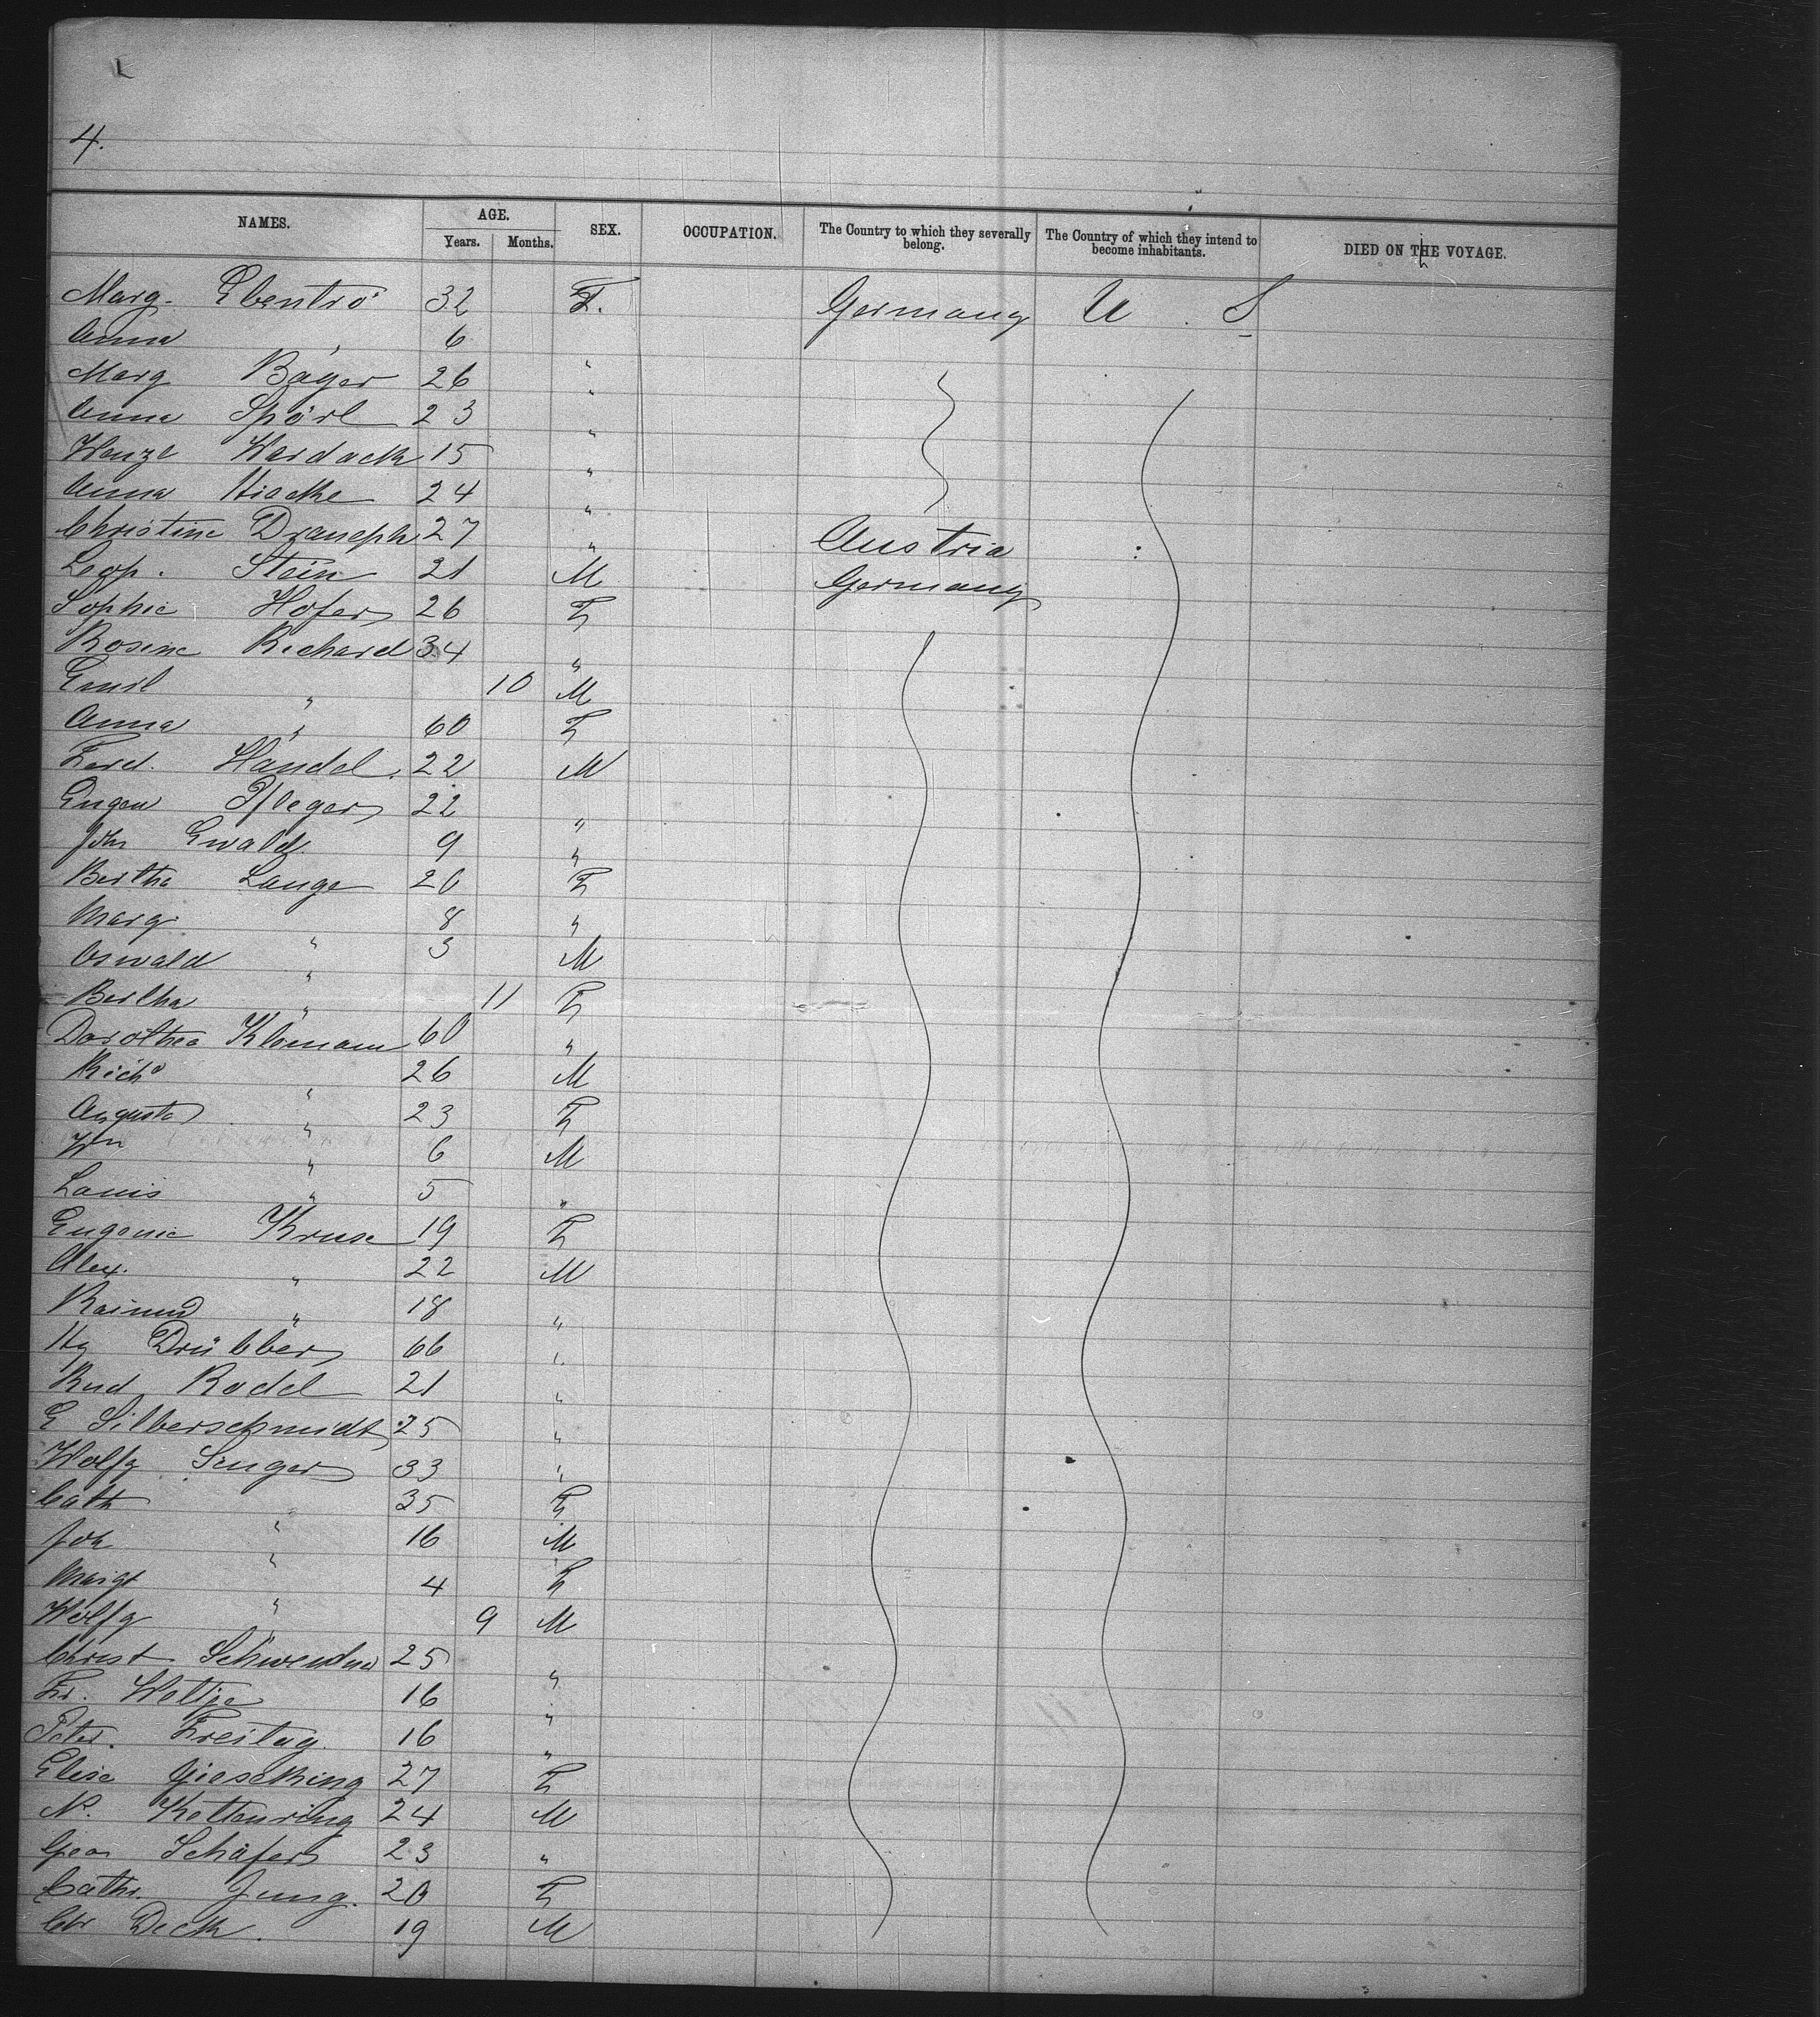 4.
NAMES. AGE. Years. Months. SEX. OCCUPATION. The Country to which they severally belong. The Country of which they intend to become inhabitants. DIED ON THE VOYAGE.
Marg. 32 F. Germany U. S
Anna " 6 "
Marg Bäyer 26 "
Anna Spörl 23 "
Wenzl Wardack 15 "
Anna 24 "
Christine 27 " Austria
Leop. Stein 21 M Germany
Sophie Hofer 26 F
Rosine Richard 34 "
Emil " 10 M
Anna " 60 F
Ferd. Händel. 22 M
Eugen Pfleger 22 "
Joh Ewald 9 "
Bertha Lange 26 F
Marg. " 8 "
Oswald " 3 M
Bertha " 11 F
Dorothea 60 "
Richd " 26 M
Auguste " 23 F
Wm " 6 M
Louis " 5 "
Eugenie Kruse 19 F
Alex. " 22 M
Raimund " 18 "
Hy Drübber 66 "
Rud Rodel 21 "
E Silberschmidt 25 "
Wolfg Senger 33 "
Cath " 35 F
Joh " 16 M
Margt " 4 F
Wolfg " 9 M
Christ 25 "
Fr. Weltje 16 "
Peter. Freitag. 16 "
Elise Gieseking 27 F
N. Kettenring 24 M
Geo Schäfer 23 "
Cathr. Jung. 20 F
Chr Deck. 19 M